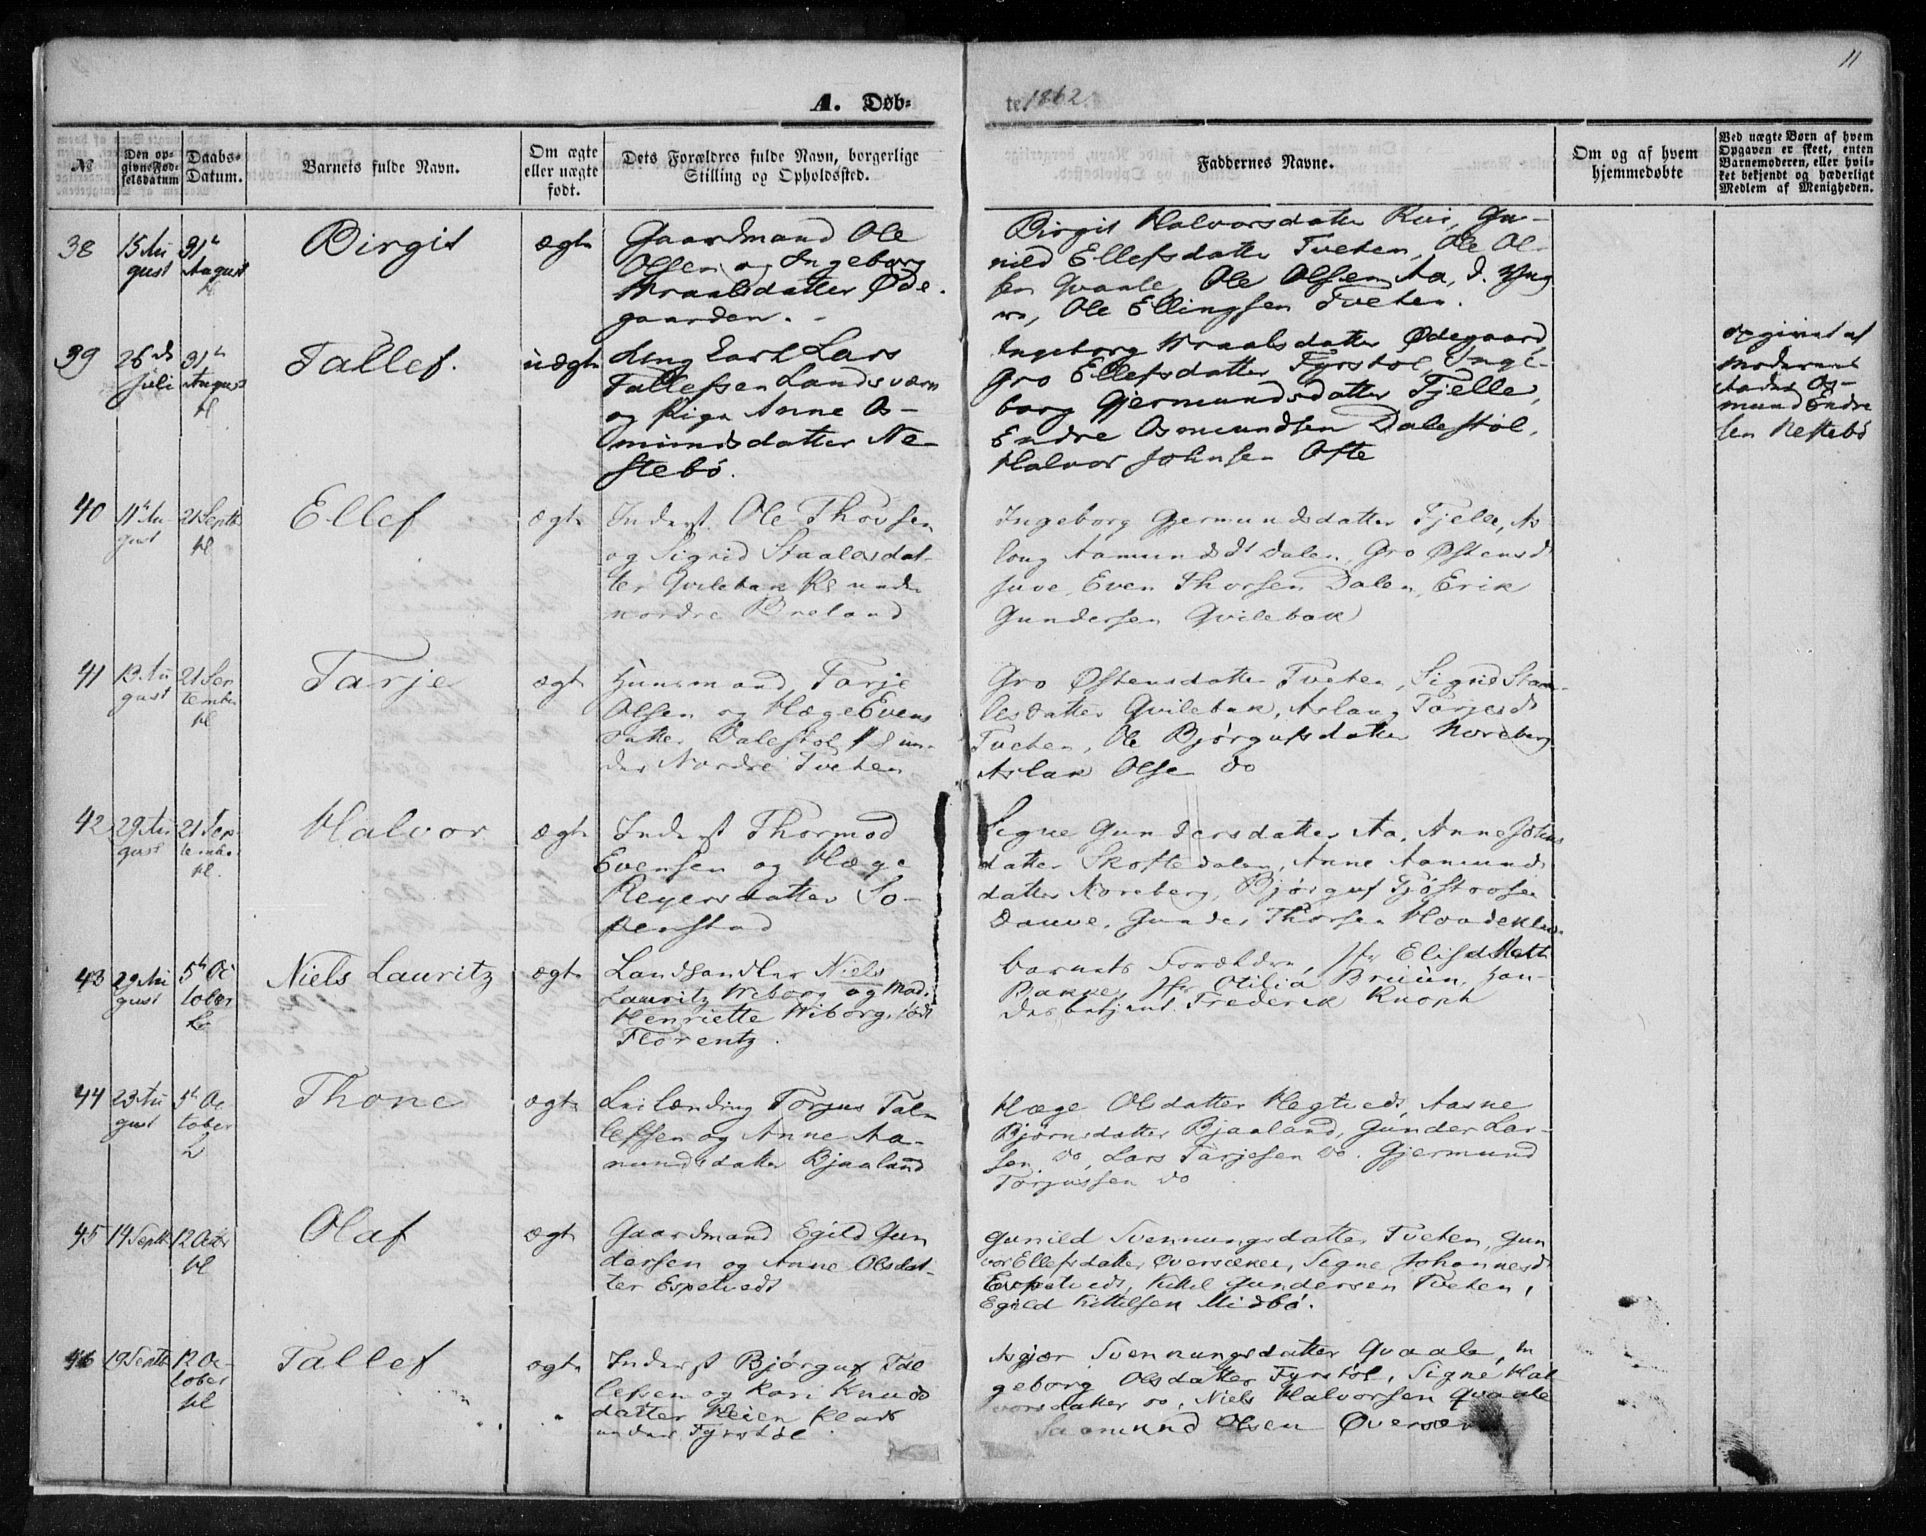 11
A. Døb-
te 1862.
№
Den op-
givne Fød-
selsdatum
Daabs-
Datum.
Barnets fulde Navn.
Om ægte
eller uægte
født.
Dets Forældres fulde Navn, borgerlige
Stilling og Opholdssted.
Faddernes Navne.
Om og af hvem
hjemmedøbte
Ved uægte Børn af hvem
Opgaven er skeet, enten
Barnemoderen, eller hvil-
ket bekjendt og hæderligt
Medlem af Menigheden.
38
15 Au
gust
31te
August
Birgit
ægte
Gaardmand Ole
Olsen og Ingeborg
Wraalsdatter Øde-
gaarden.
Birgit Halvorsdatter Rui, Gu-
nild Ellefsdatter Tveten, Ole Ol-
sen Qvaale, Ole Olsen Aa, d. yng
re, Ole Ellingsen Tveten.
39
26de
Juli
31te
August
Tallef.
uægte
Ung Karl Lars
Tallefsen Landsværn
og Pige Anne Os-
mundsdatter Ne-
stebø.
Ingeborg Wraalsdatter Ødegaard
Gro Ellefsdatter Fyrstøl, Inge-
borg Gjermundsdatter Fjelle,
Endre Osmundsen Dalestøl,
Halvor Johnsen Ofte
opgivet af
Moderens
Fader Os-
mund Endre
sen Nestebø
40
11te Au
gust
21 Septb
Ellef
ægte
Inderst Ole Thovsen
og Sigrid Staalesdat-
ter Qvilebak Pl under
nordre Breland
Ingeborg Gjermundsdatter Fjelle, As
loug Aamundsdt Dalen, Gro Østensdt
Juve, Even Thorsen Dalen, Erik
Gundersen Qvilebak
41
13 Au
gust
21 Sep
tember
Tarje
ægte
Huusmand Tarje
Olsen og Hæge Evens
datter Dalestøl Pl un-
der Nordre Tveten
Gro Østensdatter Tveten, Sigrid Staa-
lesdatter Qvilebak, Aslaug Tarjesdt
Tveten, Ole Bjørgufsdatter Noreberg
Aslak Olsen do
42
29 Au
gust
21 Sep
tember
Halvor
ægte
Inderst Thormod
Evensen og Hæge
Reyersdatter So-
penstad
Signe Gundersdatter Aa, Anne
datter Skoftedalen, Anne Aamunds
datter Noreberg, Bjørguf Tjøstovsen
Dauve, Gunder Thorsen
43
29 Au
gust
5te Oc
tober
Niels Lauritz
ægte
Landhandler Niels
Lauritz Wiborg og Mad.
Henriette Wiborg, født
Florentz.
barnets Forældre, Jfr Elise
Bakke, Jfr Otilia Bruun, Han-
delsbetjent Frederik Knoph
44
23 Au
gust
5te Oc
tober
Thone
ægte
Leilænding Torjus Tal-
lefsen og Anne Aa-
mundsdatter Bjaaland
Hæge Olsdatter Hegtvedt, Aasne
Bjørnsdatter Bjaaland, Gunder Lar-
sen do, Lars Tarjesen do. Gjermund
Torjussen do
45
14 Septb
12 Octbr
Olaf
ægte
Gaardmand Egild Gun
dersen og Anne Olsdat-
ter Espetvedt
Gunild Svennungsdatter Tveten, Gun
vor Ellefsdatter Oversæker, Signe Johannesdt
Espetvedt, Kittel Gundersen Tveten,
Egild Kittilsen Midbø.
46
19 Septb
12 Oc-
tober
Tallef
ægte
Inderst Bjørguf Tal
lefsen og Kari Knuds
datter Heien Plads
under Fyrstøl
Asgjær Svennungsdatter Qvaale, In
geborg Olsdatter Fyrstøl, Signe Hal
vorsdatter do, Niels Halvorsen Qvaale
Saamund Olsen